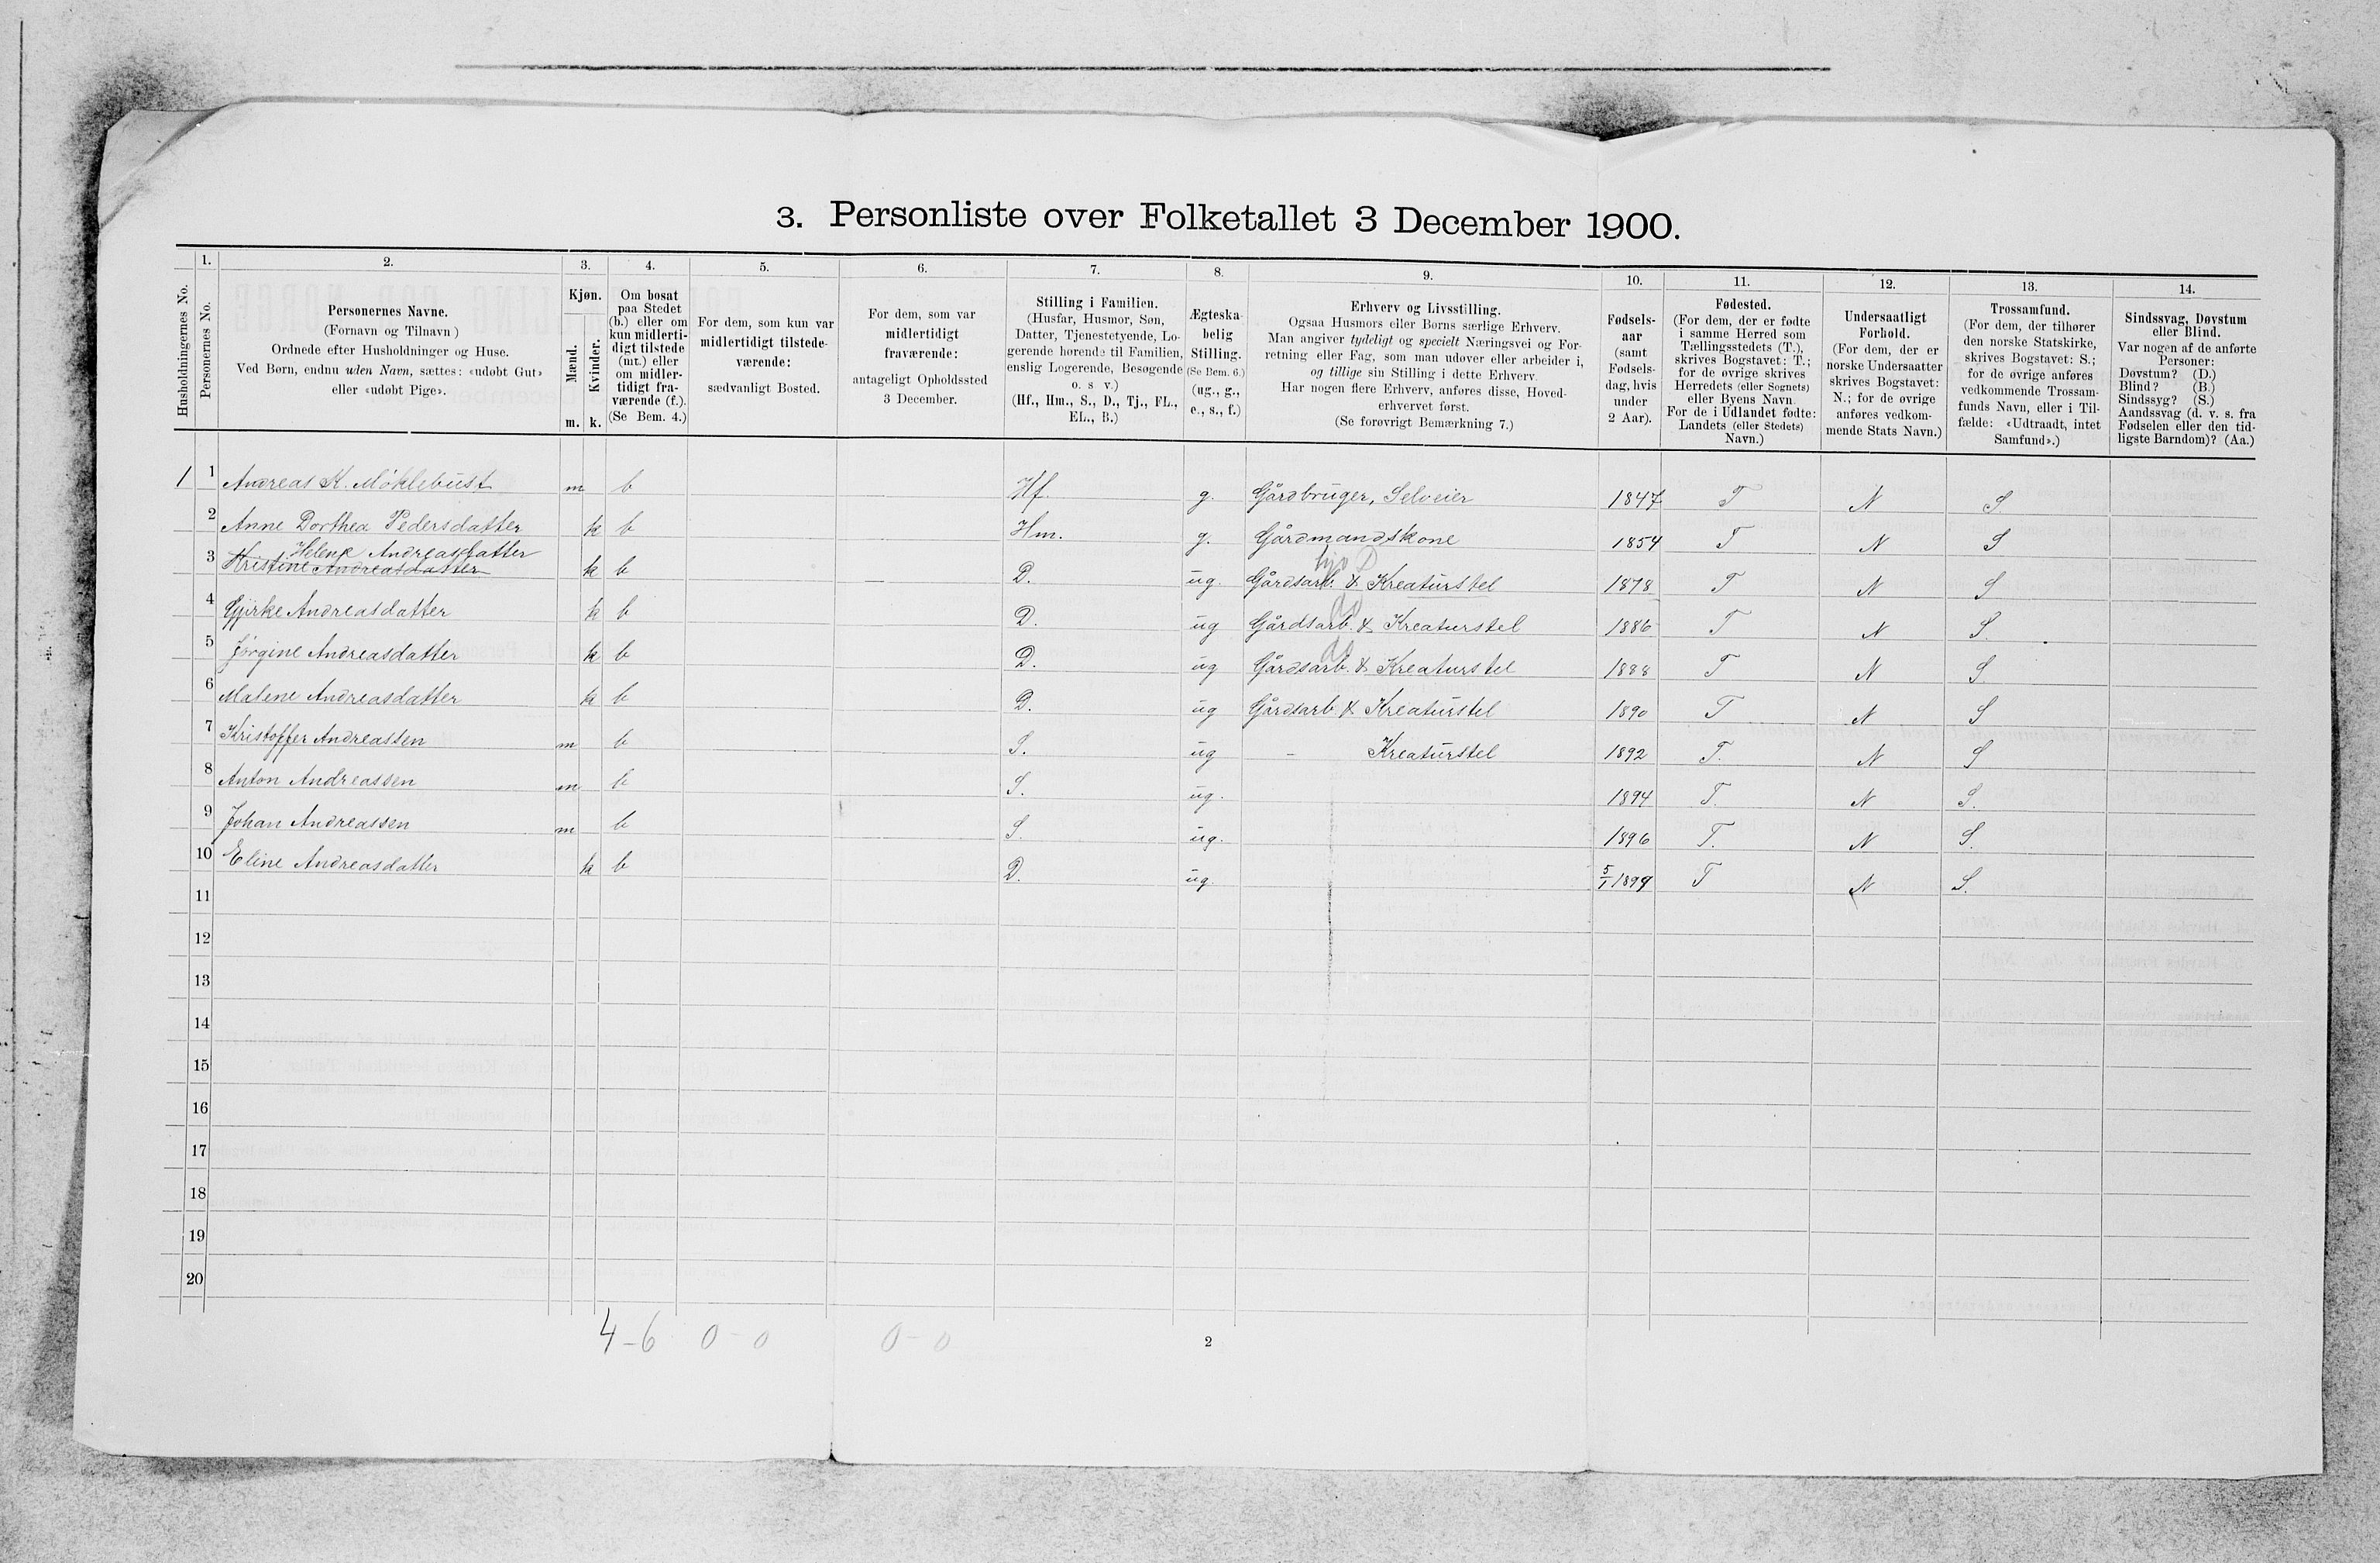 3. Personliste over Folketallet 3 December 1900.
Husholdningernes No.
1.
Personernes No.
2.
Personernes Navne.
(Fornavn og Tilnavn)
Ordnede efter Husholdninger og Huse.
Ved Børn, endnu uden Navn, sættes: «udøbt Gut»
eller «udøbt Pige».
3.
Kjøn.
Mænd.
Kvinder.
m. k.
4.
Om bosat
paa Stedet
(b.) eller om
kun midlerti-
digt tilstede
(mt.) eller
om midler-
tidigt fra-
værende (f.).
(Se Bem. 4.)
5.
For dem, som kun var
midlertidigt tilstede-
værende:
sædvanligt Bosted.
6.
For dem, som var
midlertidigt
fraværende:
antageligt Opholdssted
3 December.
7.
Stilling i Familien.
(Husfar, Husmor, Søn,
Datter, Tjenestetyende, Lo-
gerende hørende til Familien,
enslig Logerende, Besøgende
o. s. v.)
(Hf., Hm., S., D., Tj., FL.,
EL., B.)
8.
Ægteska-
belig
Stilling.
(Se Bem. 6.)
(ug., g.,
e., s., f.)
9.
Erhverv og Livsstilling.
Ogsaa Husmors eller Børns særlige Erhverv.
Man angiver tydeligt og specielt Næringsvei og For-
retning eller Fag, som man udøver eller arbeider i,
og tillige sin Stilling i dette Erhverv.
Har nogen flere Erhverv, anføres disse, Hoved-
erhvervet først.
(Se forøvrigt Bemærkning 7.)
10.
Fødsels-
aar
(samt
Fødsels-
dag, hvis
under
2 Aar).
11.
Fødested.
(For dem, der er fødte
i samme Herred som
Tællingsstedets (T.),
skrives Bogstavet: T.;
for de øvrige skrives
Herredets (eller Sognets)
eller Byens Navn.
For de i Udlandet fødte:
Landets (eller Stedets)
Navn.)
12.
Undersaatligt
Forhold.
(For dem, der er
norske Undersaatter
skrives Bogstavet:
N.; for de øvrige
anføres vedkom-
mende Stats Navn.)
13.
Trossamfund.
(For dem, der tilhører
den norske Statskirke,
skrives Bogstavet: S.;
for de øvrige anføres
vedkommende Trossam-
funds Navn, eller i Til-
fælde: «Udtraadt, intet
Samfund».)
14.
Sindssvag, Døvstum
eller Blind.
Var nogen af de anførte
Personer:
Døvstum? (D.)
Blind? (B.)
Sindssyg? (S.)
Aandssvag (d. v. s. fra
Fødselen eller den tid-
ligste Barndom)? (Aa.)
1 1 Andreas K. Möklebust m b Hf. g. Gårdbruger, Selveier 1847 T N S
2 Anne Dorthea Pedersdatter k b Hm. g. Gårdmandskone 1854 T N S
Helene Andreasdatter
3 Kristine Andreasdatter k b — D. ug. Gårdsarb. & Kreaturstel 1878 T N S
do
4 Gjirke Andreasdatter k b D. ug Gårdsarb. & Kreaturstel 1886 T N S.
do
5 Jörgine Andreasdatter k b D. ug Gårdsarb. & Kreaturstel 1888 T N S
6 Malene Andreasdatter k b D. ug Gårdsarb. & Kreaturstel 1890 T N S
7 Kristoffer Andreassen m b S. ug - Kreaturstel 1892 T. N S
8 Anton Andreassen m b S. ug. 1894 T. N S.
9 Johan Andreassen m b S. ug. 1896 T. N S.
10 Eline Andreasdatter k b D. ug. 5/1 1899 T N S.
11
12
13
14
15
16
17
18
19
20
4-6 0-0 0-0
2